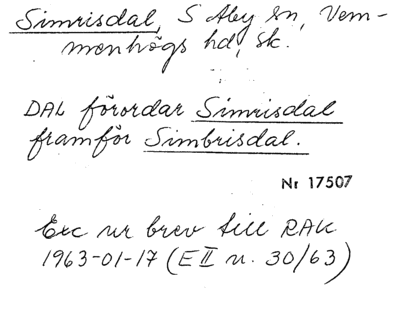 Simrisdal, S Åby sn, Vem-
menhögs hd, Sk.
DAL förordar Simrisdal
framför Simbrisdal.
Nr 17507
Exc ur brev till RAK
1963-01-17 (E II n. 30/63)